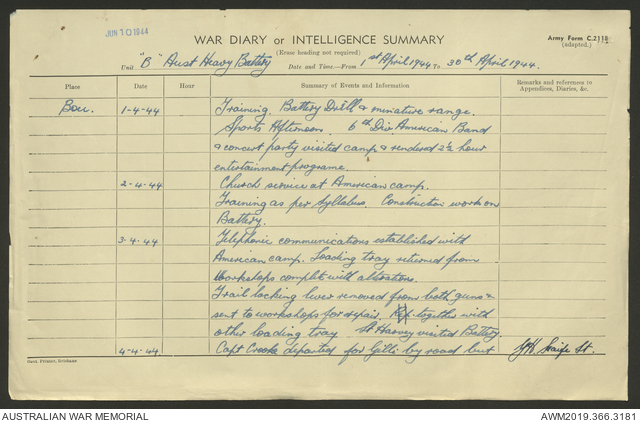 JUN 10 1944
WAR DIARY or INTELLIGENCE SUMMARY
(Erase heading not required)
Army Form C.2118
(adapted.)
Unit "B" Aust Heavy Battery Date and Time.—From 1st April 1944 To 30th April 1944.
Place Date Hour Summary of Events and Information Remarks and references to
Appendices, Diaries, &c.
1-4-44 Training. Battery Drill & miniature range.
Sports Afternoon. 6th Div. American Band
& concert party visited camp & rendered 2½ hour
entertainment programe.
2-4-44 Church service at American camp.
Training as per Syllabus. Construction work on
Battery.
3-4-44 Telephonic communications established with
American camp. Loading tray returned from
Workshops complete with alterations.
Trail locking lever removed from both guns &
sent to workshops for repair. together with
other loading tray Lt Harvey visited Battery.
4-4-44 Capt Crooke departed for Gilli by road but Lt.
AUSTRALIAN WAR MEMORIAL AWM2019.366.3181